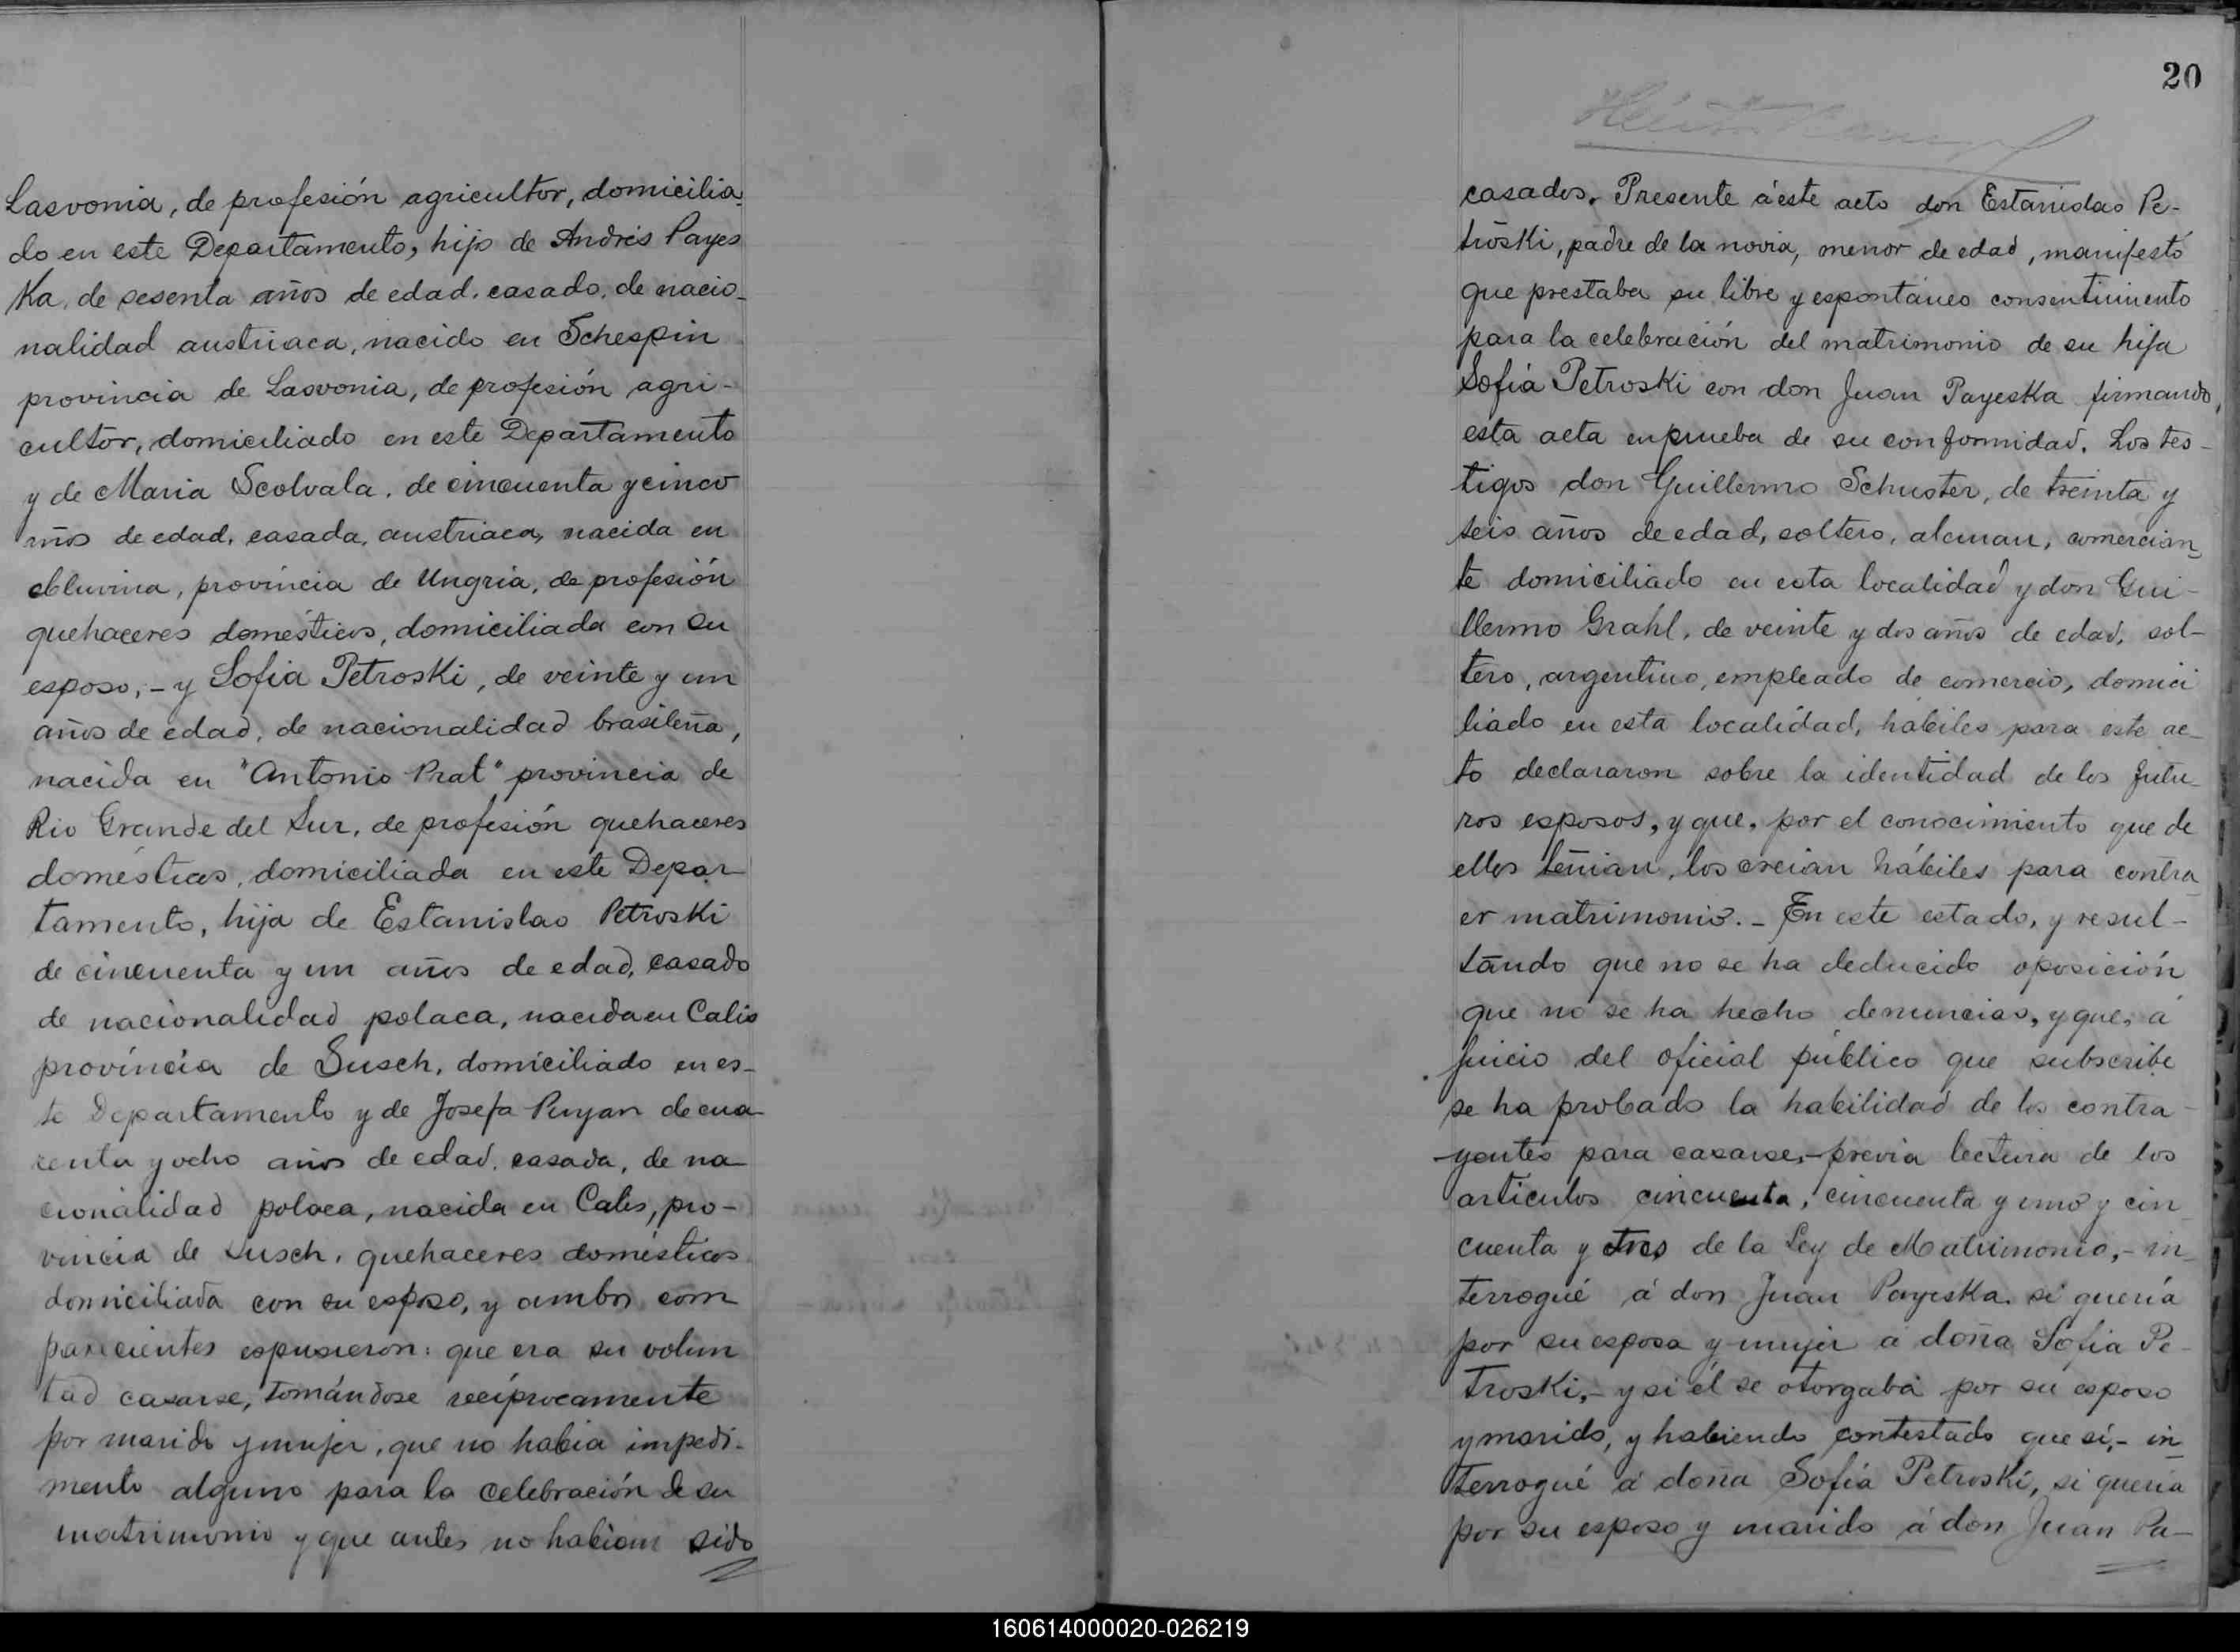 Lasvonia, de profesión agricultor, domicilia-
do en este Departamento, hijo de Andrés Payes
Ka, de sesenta años de edad, casado, de nacio-
nalidad austriaca, nacido en Schespin
provincia de Lasvonia, de profesión agri-
cultor, domiciliado en este Departamento
y de Maria Scolvala, de cincuenta y cinco
años de edad, casada, austriaca, nacida en
provincia de Ungria, de profesión
quehaceres domésticos, domiciliada con su
esposo, - y Sofia Petroski, de veinte y un
años de edad, de nacionalidad brasileña,
nacida en "Antonio Prat" provincia de
Rio Grande del Sur, de profesión quehaceres
domésticos, domiciliada en este Depar-
tamento, hija de Estanislao Petroski
de cincuenta y un años de edad, casado
de nacionalidad polaca, nacida en Calis
provincia de Susch, domiciliado en es-
te Departamento y de Josefa Puyan de cua-
renta y ocho años de edad, casada, de na-
cionalidad polaca, nacida en Calis, pro-
vincia de Susch, quehaceres domésticos
domiciliada con su esposo, y ambos com
parecientes espusieron: que era su volun
tad casarse, tomándose recíprocamente
por marido y mujer, que no habia impedi-
mento alguno para la celebración de su
matrimonio y que antes no habian sido
20
casados. Presente á este acto don Estanislao Pe-
troski, padre de la novia, menor de edad, manifestó
que prestaba su libre y espontáneo consentimiento
para la celebración del matrimonio de su hija
Sofía Petroski con don Juan Payeska firmando,
esta acta en prueba de su conformidad. Los tes-
tigos don Guillermo Schuster, de treinta y
seis años de edad, soltero, aleman, comercian
te domiciliado en esta localidad y don Gui-
llermo Grahl, de veinte y dos años de edad, sol-
tero, argentino, empleado de comercio, domici
liado en esta localidad, hábiles para este ac-
to declararon sobre la identidad de los futu-
ros esposos, y que, por el conocimiento que de
ellos tenian, los creian hábiles para contra
er matrimonio. - En este estado, y resul-
tando que no se ha deducido oposición
que no se ha hecho denuncias, y que, á
juicio del oficial público que subscribe
se ha probado la habilidad de los contra-
yentes para casarse, - previa lectura de los
artículos cincuenta, cincuenta y uno y cin
cuenta y tres de la Ley de Matrimonio, - in
terrogué á don Juan Payeska. si quería
por su esposa y mujer á doña Sofía Pe-
troski, - y si él se otorgaba por su esposo
y marido, y habiendo contestado que sí, - in
terrogué á doña Sofía Petroski, si quería
por su esposo y marido á don Juan Pa-
160614000020-026219